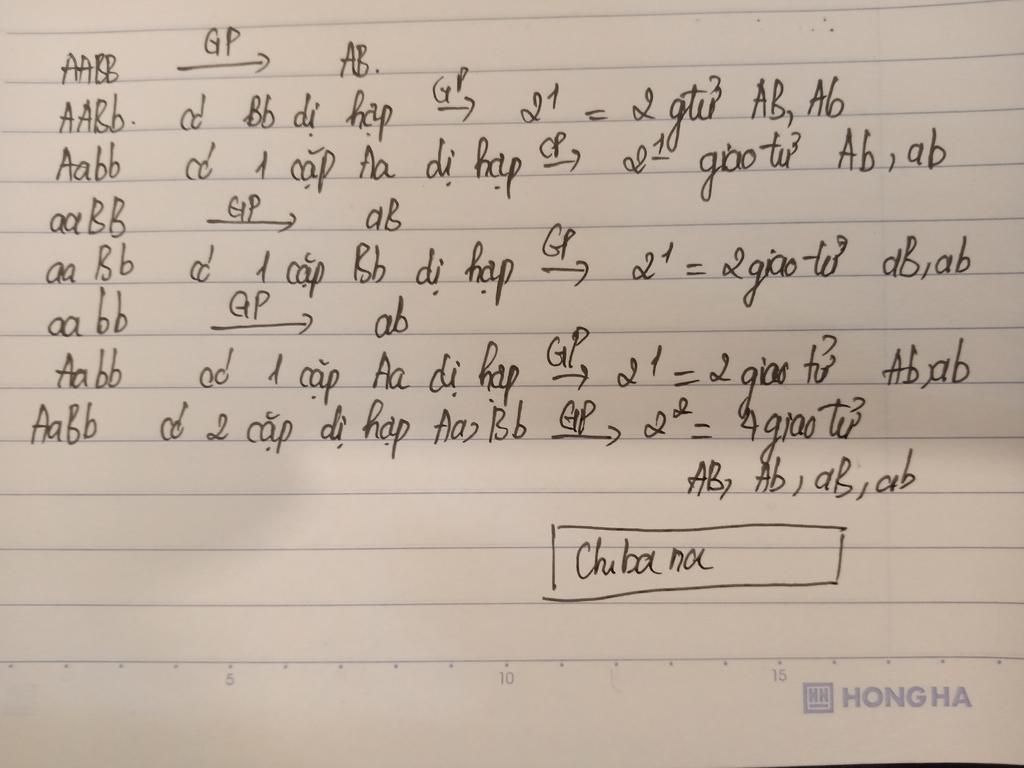 AABB GP→ AB.
AABb. có Bb dị hợp GP→ 2¹ = 2 gtử AB, Ab
Aabb có 1 cặp Aa dị hợp GP→ 2¹ giao tử Ab, ab
aaBB GP→ aB
aa Bb có 1 cặp Bb dị hợp GP→ 2¹ = 2 giao tử aB, ab
aa bb GP→ ab
Aabb có 1 cặp Aa dị hợp GP→ 2¹ = 2 giao tử Ab, ab
AaBb có 2 cặp dị hợp Aa, Bb GP→ 2² = 4 giao tử
AB, Ab, aB, ab
Chubana
5 10 15
HH HONG HA